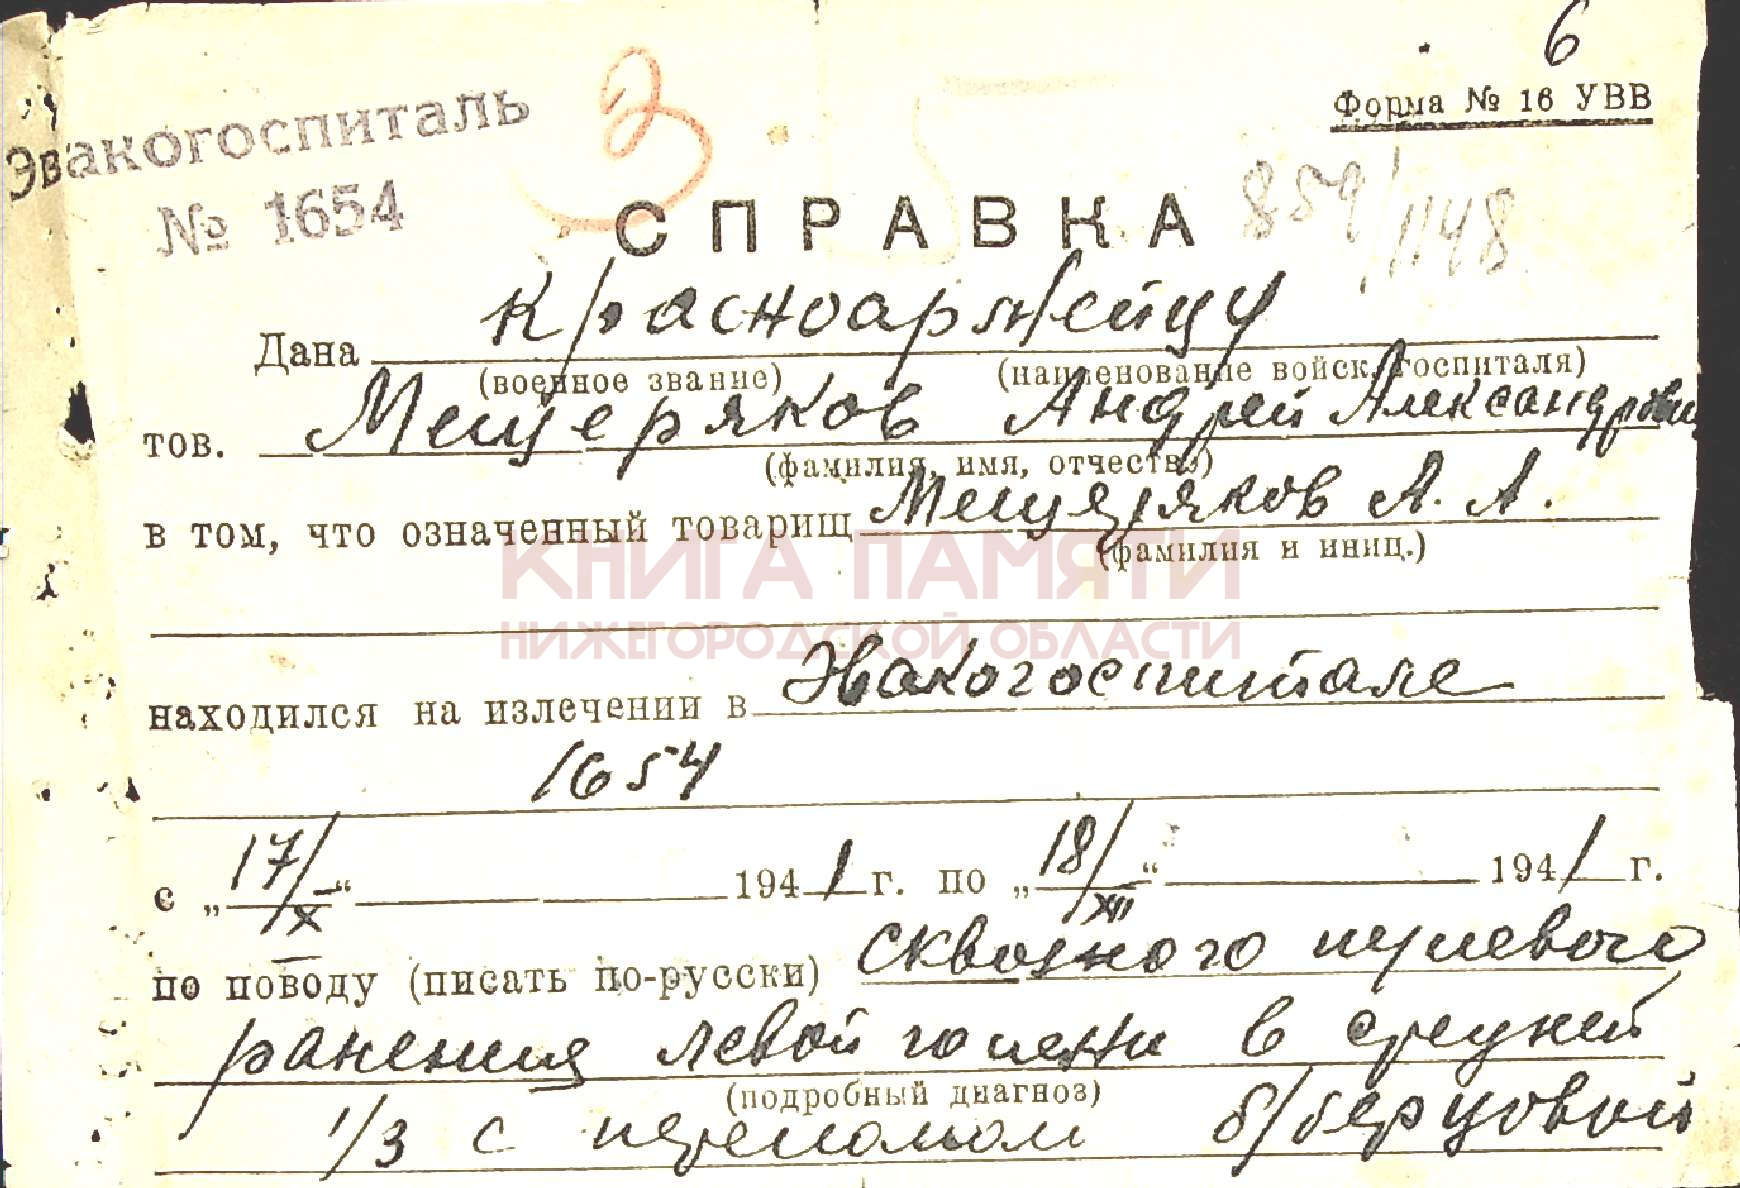 6
Форма № 16 УВВ
Эвакогоспиталь
№ 1654
3
СПРАВКА 859/1148
Дана красноармейцу
(военное звание) (наименование войск. госпиталя)
тов. Мещеряков Андрей Александрович
(фамилия, имя, отчество)
в том, что означенный товарищ Мещеряков А. А.
(фамилия и иниц.)
КНИГА ПАМЯТИ
НИЖЕГОРОДСКОЙ ОБЛАСТИ
находился на излечении в Эвакогоспитале
1654
с „17/X“ 1941 г. по „18/XII“ 1941 г.
по поводу (писать по-русски) сквозного пулевого
ранения левой голени в средней
(подробный диагноз)
1/3 с переломом б/берцовой